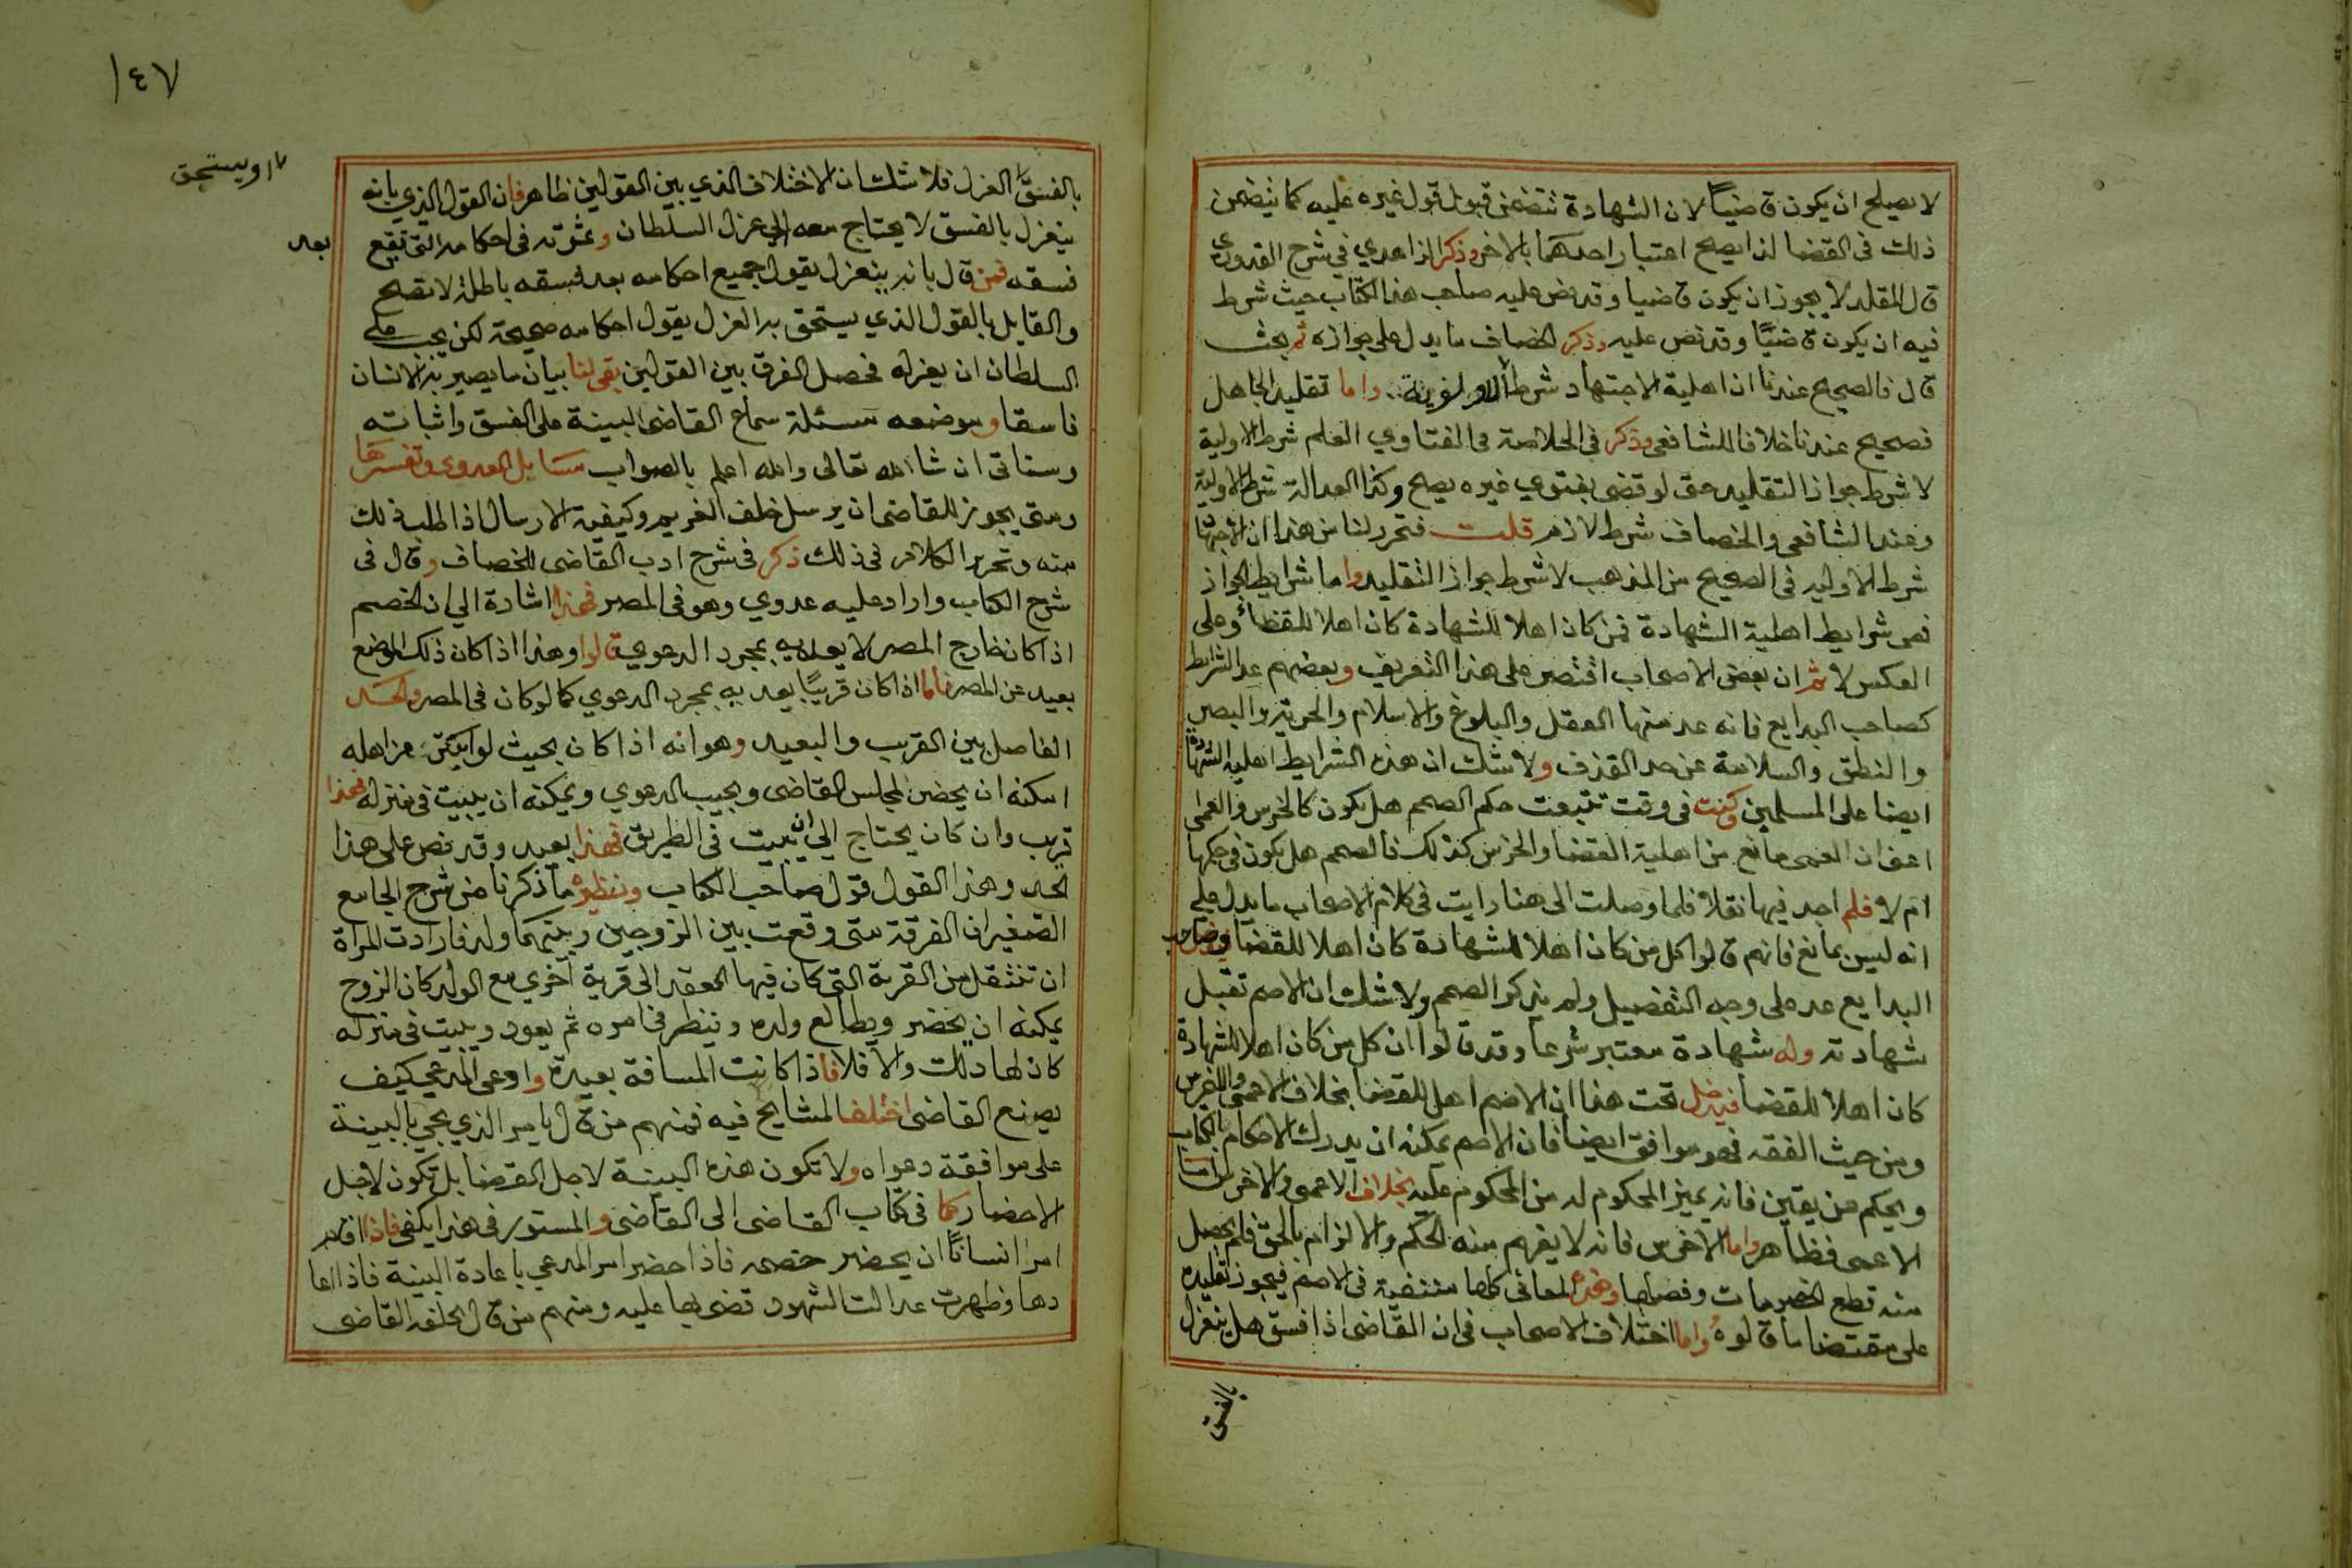 لا يصلح ان يكون قاضيًا لان الشهادة تتضمن قبول قول غيره عليه كما يتضمن
ذلك فى القضا لذا يصح اعتبار احدهما بالاخر وذكر الزاهدي في شرح القدوري
قال المقلد لا يجوز ان يكون قاضيا وقد نص عليه صاحب هذا الكتاب حيث شرط
فيه ان يكون قاضيًا وقد نص عليه وذكر الخصاف ما يدل على جوازه ثم بحث
قال فالصحيح عندنا ان اهلية الاجتهاد شرط الاولوية واما تقليد الجاهل
فصحيح عندنا خلافا للشافعى وذكر فى الخلاصة فى الفتاوي العلم شرط الاولية
لا شرط جواز التقليد حتى لو قضى بفتوي غيره يصح وكذا العدالة شرط الاولية
وعند الشافعى والخصاف شرط لازم قلت فتحرر لنا من هذا ان الاجتهاد
شرط الاوليه فى الصحيح من المذهب لا شرط جواز التقليد واما شرايط الجواز
فهى شرايط اهلية الشهادة فمن كان اهلا للشهادة كان اهلا للقضاء وعلى
العكس لا ثم ان بعض الاصحاب اقتصر على هذا التعريف وبعضهم عد الشرايط
كصاحب البدايع فانه عد منها العقل والبلوغ والاسلام والحرية والبصر
والنطق والسلامة عن حد القذف ولا شك ان هذه الشرايط اهلية الشهادة
ايضا على المسلمين وكنت فى وقت تتبعت حكم الصمم هل يكون كالخرس والعمى
اعنى ان العمى مانع من اهلية القضا والخرس كذلك فالصمم هل يكون فى حكمها
ام لا فلم اجد فيها نقلا فلما وصلت الى هنا رايت فى كلام الاصحاب ما يدل على
انه ليس بمانع فانهم قالوا كل من كان اهلا للشهادة كان اهلا للقضا وصاحب
البدايع عد على وجه التفصيل ولم يذكر الصمم ولا شك ان الاصم تقبل
شهادته وله شهادة معتبر شرعا وقد قالوا ان كل من كان اهلا للشهادة
كان اهلا للقضا فيدخل تحت هذا ان الاصم اهل للقضا بخلاف الاعمى والاخرس
ومن حيث الفقه فهو موافق ايضا فان الاصم يمكنه ان يدرك الاحكام بالكتاب
ويحكم عن يقين فانه يميز المحكوم له من المحكوم عليه بخلاف الاعمى والاخرس اما
الاعمى فظاهر واما الاخرس فانه لا يفهم منه الحكم والالزام بالحق فلم يحصل
منه قطع الخصومات وفصلها وهذه المعانى كلها منتفية فى الاصم فيجوز تقليده
على مقتضا ما قالوه واما اختلاف الاصحاب فى ان القاضى اذا فسق هل ينعزل
بالفسق
١٤٧
او يستحق
بالفسق العزل فلا شك ان الاختلاف الذي بين القولين ظاهر فان القول الذي بانه
ينعزل بالفسق لا يحتاج معه الى عزل السلطان وثمرته فى احكامه التى تقع
بعد
فسقه فمن قال بانه ينعزل يقول جميع احكامه بعد فسقه باطلة لا تصح
والقايل بالقول الذي يستحق به العزل يقول احكامه صحيحة لكن يجب على
السلطان ان يعزله فحصل الفرق بين القولين بقى لنا بيان ما يصير به الانسان
فاسقا وموضعه مسئلة سماع القاضى البينة على الفسق واثباته
وستاتى ان شا الله تعالى والله اعلم بالصواب مسايل العدوى وتفسيرها
ومتى يجوز للقاضى ان يرسل خلف الغريم وكيفية الارسال اذا طلب ذلك
منه وتحرير الكلام فى ذلك ذكر فى شرح ادب القاضى للخصاف وقال فى
شرح الكتاب واراد عليه عدوي وهو فى المصر فهذا اشارة الى ان الخصم
اذا كان خارج المصر لا يعديه بمجرد الدعوي قالوا وهذا اذا كان ذلك الموضع
بعيد عن المصر فاما اذا كان قريبًا يعديه بمجرد الدعوي كما لو كان فى المصر والحد
الفاصل بين القريب والبعيد وهو انه اذا كان بحيث لو ابتكر من اهله
امكنه ان يحضر لمجلس القاضى ويجيب الدعوي ويمكنه ان يبيت فى منزله فهذا
قريب وان كان يحتاج الى ان يبيت فى الطريق فهذا بعيد وقد نص على هذا
الحد وهذا القول قول صاحب الكتاب ونظيره ما ذكرنا من شرح الجامع
الصغير ان الفرقة متى وقعت بين الزوجين وبينهما ولد فارادت المراة
ان تنتقل من القرية التى كان فيها العقد الى قرية اخري مع الولد كان الزوج
يمكنه ان يحضر ويطالع ولده وينظر فى امره ثم يعود ويبيت فى منزله
كان لها ذلك والا فلا فاذا كانت المسافة بعيدة وادعى المدعى كيف
يصنع القاضى اختلف المشايخ فيه فمنهم من قال يامر الذي يجي بالبينة
على موافقة دعواه ولا تكون هذه البينة لاجل القضا بل تكون لاجل
الاحضار كما فى كتاب القاضى الى القاضى والمستور فى هذا يكفى فاذا اقام
امر انسانًا ان يحضر خصمه فاذا حضر امر المدعي باعادة البينة فاذا اعا
دها وظهرت عدالت الشهود قضى بها عليه ومنهم من قال يحلفه القاضى